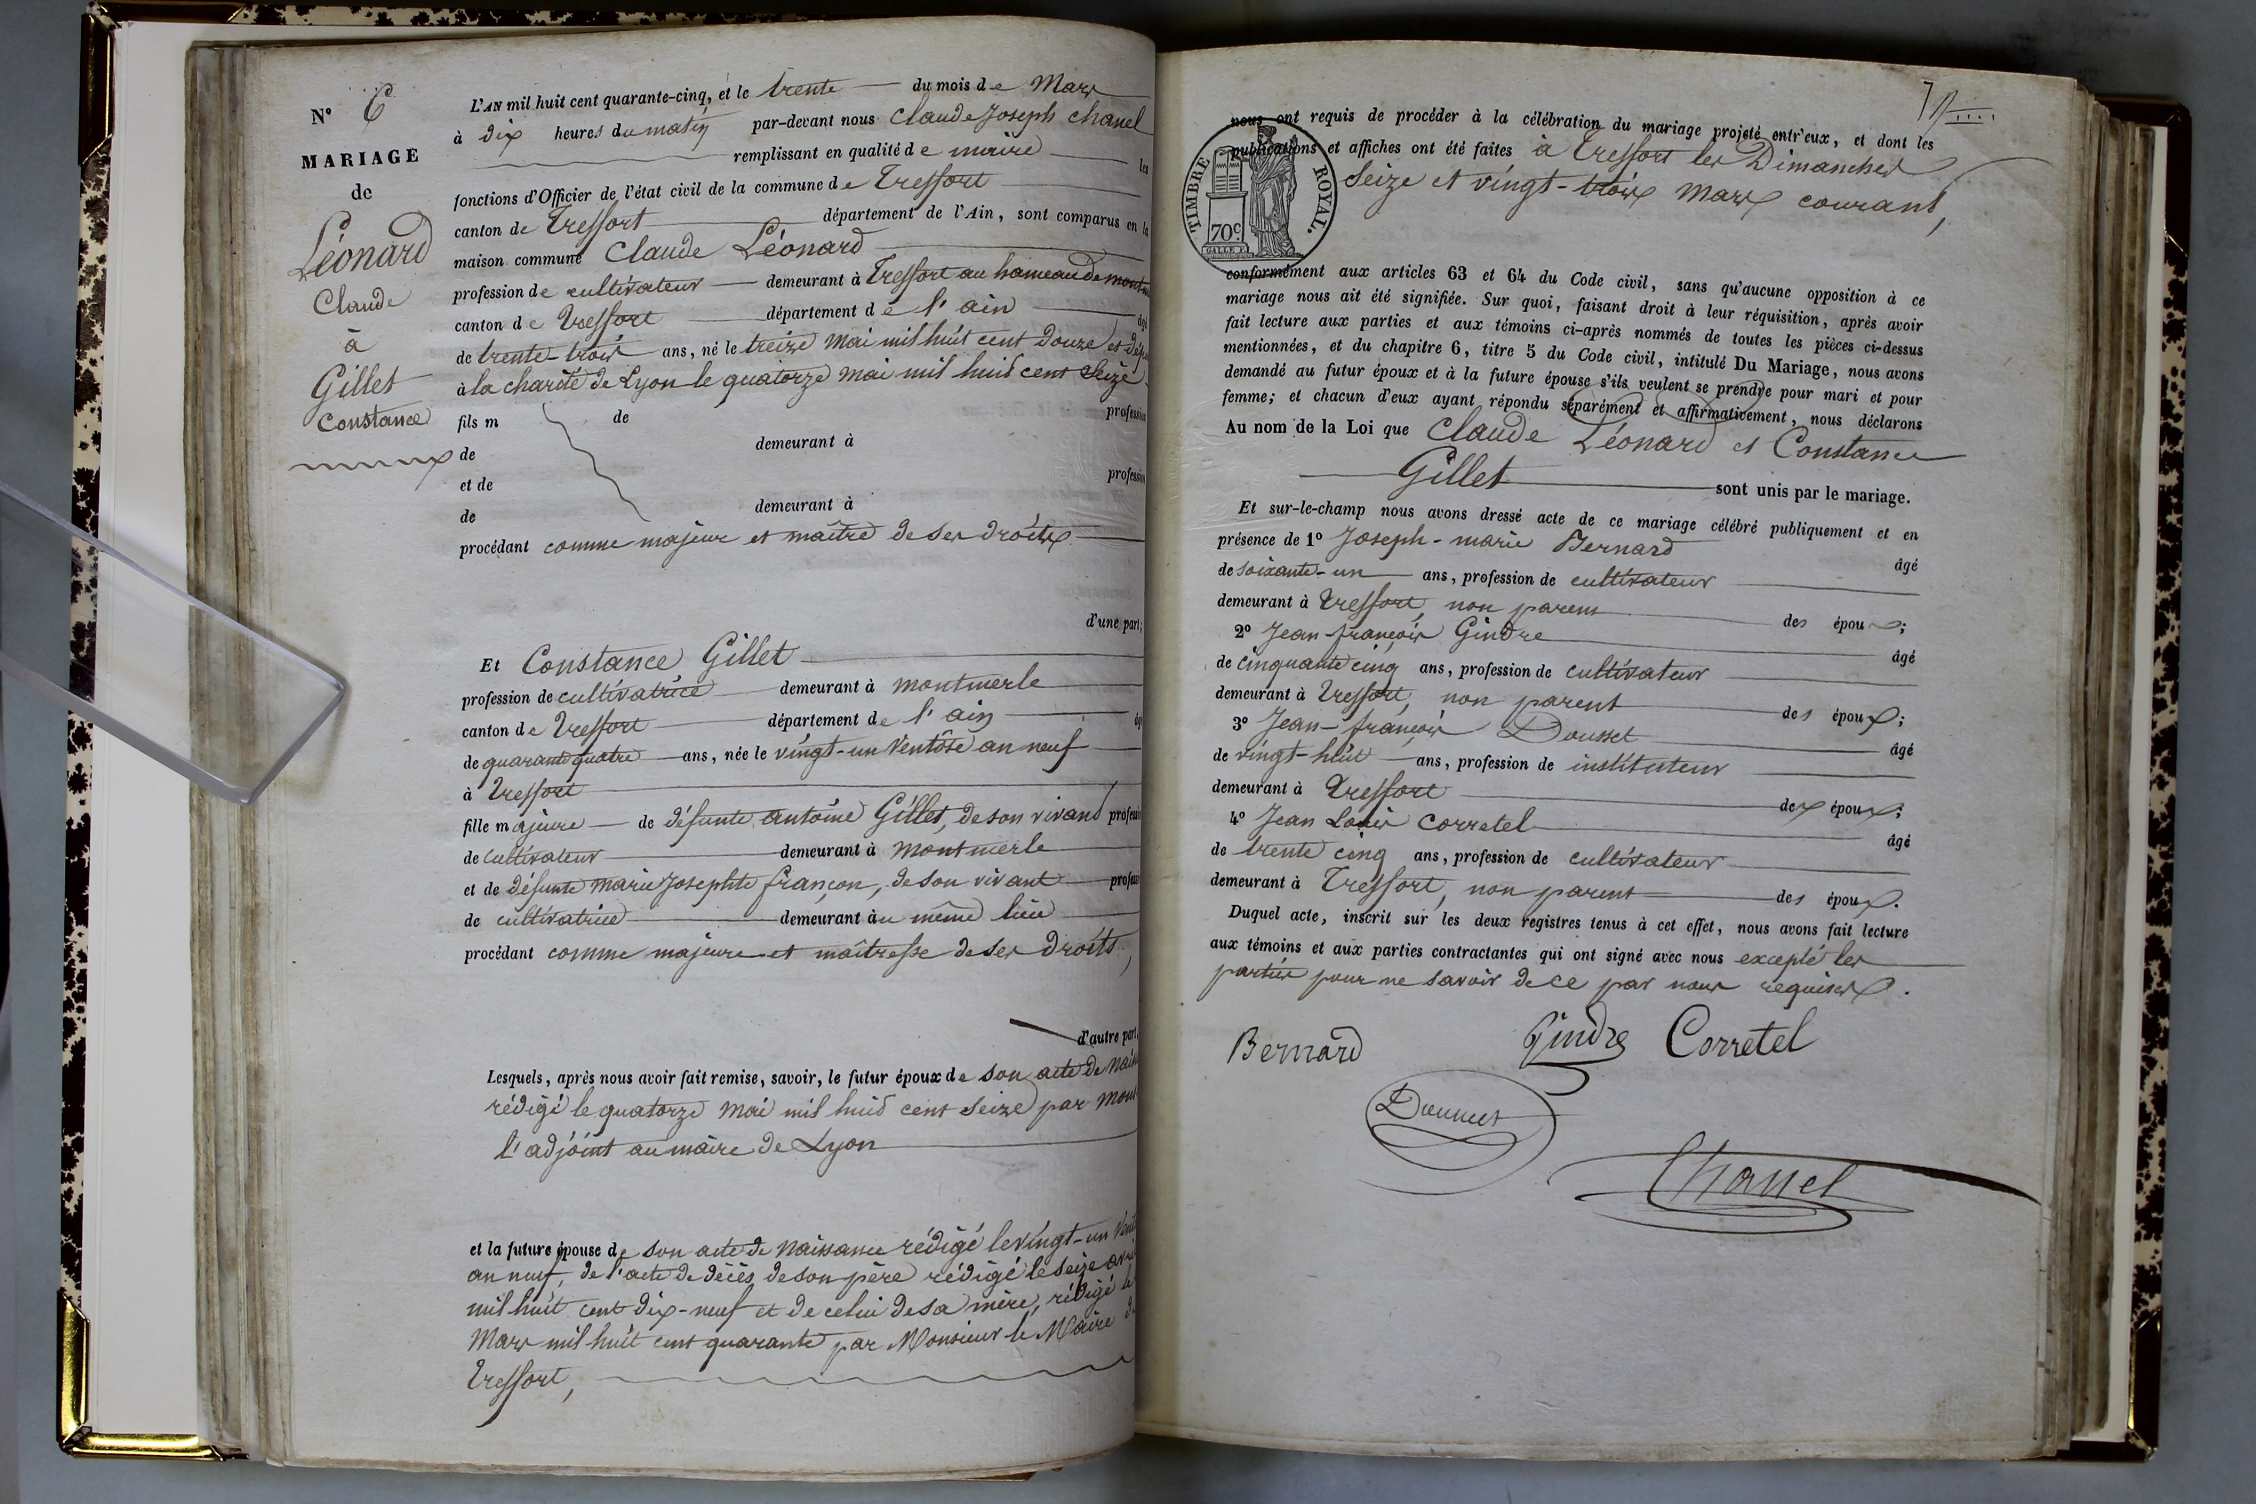 N° 6
MARIAGE
de
Léonard
Claude
à
Gillet
Constance
L'AN mil huit cent quarante-cinq, et le trente du mois de Mars
à dix heures du matin par-devant nous Claude Joseph Chanel
remplissant en qualité de maire les
fonctions d'Officier de l'état civil de la commune de Treffort
canton de Treffort département de l'Ain, sont comparus en la
maison commune Claude Léonard
profession de cultivateur demeurant à Treffort au hameau de
canton de Treffort département de l'ain âgé
de trente-trois ans, né le treize mai mil huit cent douze et
à la charité de Lyon le quatorze mai mil huit cent seize
fils m de profession
de demeurant à
et de profession
de demeurant à
procédant comme majeur et maître de ses droits
d'une part;
Et Constance Gillet
profession de cultivatrice demeurant à montmerle
canton de Treffort département de l'ain âg
de quarante quatre ans, née le vingt-un Ventôse an neuf
à Treffort
fille majeure de défunte antoine Gillet, de son vivant profession
de cultivateur demeurant à montmerle
et de défunte marie Josephte françon, de son vivant profession
de cultivatrice demeurant au même lieu
procédant comme majeure et maîtresse de ses droits,
d'autre part.
Lesquels, après nous avoir fait remise, savoir, le futur époux de son acte de nais
rédigé le quatorze mai mil huit cent seize par mons
l'adjoint au maire de Lyon
et la future épouse de son acte de naissance rédigé le vingt-un Vent
an neuf, de l'acte de décès de son père rédigé le seize avri
mil huit cent dix-neuf et de celui de sa mère, rédigé le
Mars mil huit cent quarante par Monsieur le Maire de
Treffort,
nous ont requis de procéder à la célébration du mariage projeté entr'eux, et dont les
publications et affiches ont été faites à Treffort les Dimanches
seize et vingt-trois mars courant,
TIMBRE ROYAL.
70c.
conformément aux articles 63 et 64 du Code civil, sans qu'aucune opposition à ce
mariage nous ait été signifiée. Sur quoi, faisant droit à leur réquisition, après avoir
fait lecture aux parties et aux témoins ci-après nommés de toutes les pièces ci-dessus
mentionnées, et du chapitre 6, titre 5 du Code civil, intitulé Du Mariage, nous avons
demandé au futur époux et à la future épouse s'ils veulent se prendre pour mari et pour
femme; et chacun d'eux ayant répondu séparément et affirmativement, nous déclarons
Au nom de la Loi que Claude Léonard et Constance
Gillet sont unis par le mariage.
Et sur-le-champ nous avons dressé acte de ce mariage célébré publiquement et en
présence de 1° Joseph-marie Bernard âgé
de soixante-un ans, profession de cultivateur
demeurant à Treffort, non parent des époux;
2° Jean-françois Gindre âgé
de cinquante cinq ans, profession de cultivateur
demeurant à Treffort, non parent des époux;
3° Jean-françois Dousset âgé
de vingt-huit ans, profession de instituteur
demeurant à Treffort des époux;
4° Jean Louis Corretel âgé
de trente cinq ans, profession de cultivateur
demeurant à Treffort, non parent des époux.
Duquel acte, inscrit sur les deux registres tenus à cet effet, nous avons fait lecture
aux témoins et aux parties contractantes qui ont signé avec nous excepté les
parties pour ne savoir de ce par nous requises.
Bernard Gindre Corretel
Chanel